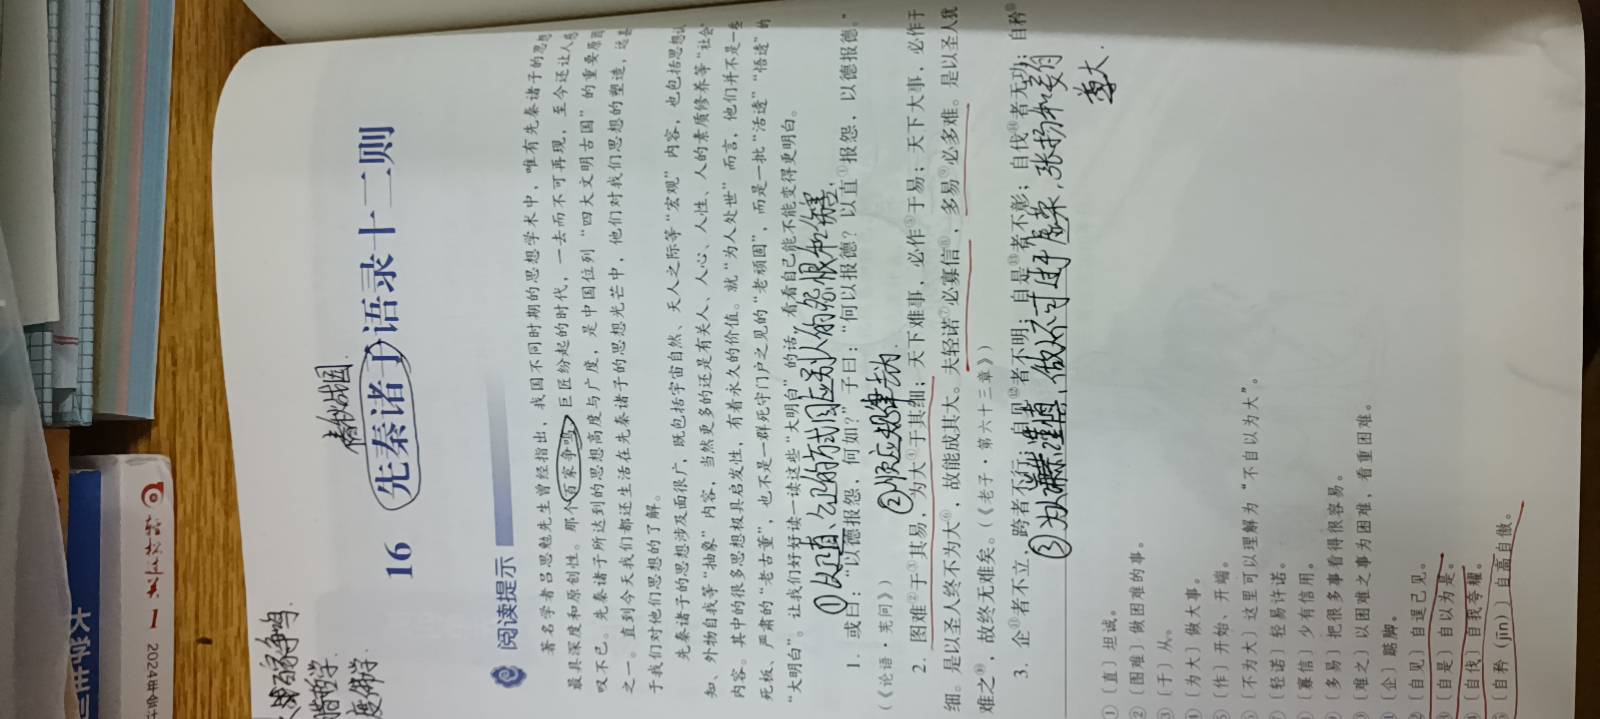 春秋战国
16 先秦诸子语录十二则
百家争鸣
阅读提示
著名学者吕思勉先生曾经指出，我国不同时期的思想学术中，唯有先秦诸子的思想
最具深度和原创性。那个百家争鸣、巨匠纷起的时代，一去而不可再现，至今还让人感
叹不已。先秦诸子所达到的思想高度与广度，是中国位列“四大文明古国”的重要原因
之一。直到今天我们都还生活在先秦诸子的思想光芒中，他们对我们思想的塑造，远甚
于我们对他们思想的了解。
先秦诸子的思想涉及面很广，既包括宇宙自然、天人之际等“宏观”内容，也包括思想认
知、外物自我等“抽象”内容，当然更多的还是有关人、人心、人性、人的素质修养等“社会”
内容。其中的很多思想极具启发性，有着永久的价值。就“为人处世”而言，他们并不是一些
死板、严肃的“老古董”，也不是一群死守门户之见的“老顽固”，而是一批“活透”“悟透”的
“大明白”。让我们好好读一读这些“大明白”的话，看看自己能不能变得更明白。
①以正直、公正的方式回应别人的怨恨和伤害.
1. 或曰：“以德报怨，何如？”子曰：“何以报德？以直①报怨，以德报德。”
（《论语·宪问》）
②顺应规律去做.
2. 图难②于③其易，为大④于其细；天下难事，必作⑤于易；天下大事，必作于
细。是以圣人终不为大⑥，故能成其大。夫轻诺⑦必寡信⑧，多易⑨必多难。是以圣人犹
难之⑩，故终无难矣。（《老子·第六十三章》）
3. 企⑪者不立，跨者不行；自见⑫者不明；自是⑬者不彰；自伐⑭者无功；自矜⑮
③为人谦逊谨慎，做不可过于虚荣，张扬和妄自
尊大.
①〔直〕坦诚。
②〔图难〕做困难的事。
③〔于〕从。
④〔为大〕做大事。
⑤〔作〕开始、开端。
⑥〔不为大〕这里可以理解为“不自以为大”。
⑦〔轻诺〕轻易许诺。
⑧〔寡信〕少有信用。
⑨〔多易〕把很多事看得很容易。
⑩〔难之〕以困难之事为困难，看重困难。
⑪〔企〕踮脚。
⑫〔自见〕自逞己见。
⑬〔自是〕自以为是。
⑭〔自伐〕自我夸耀。
⑮〔自矜（jīn）〕自高自傲。